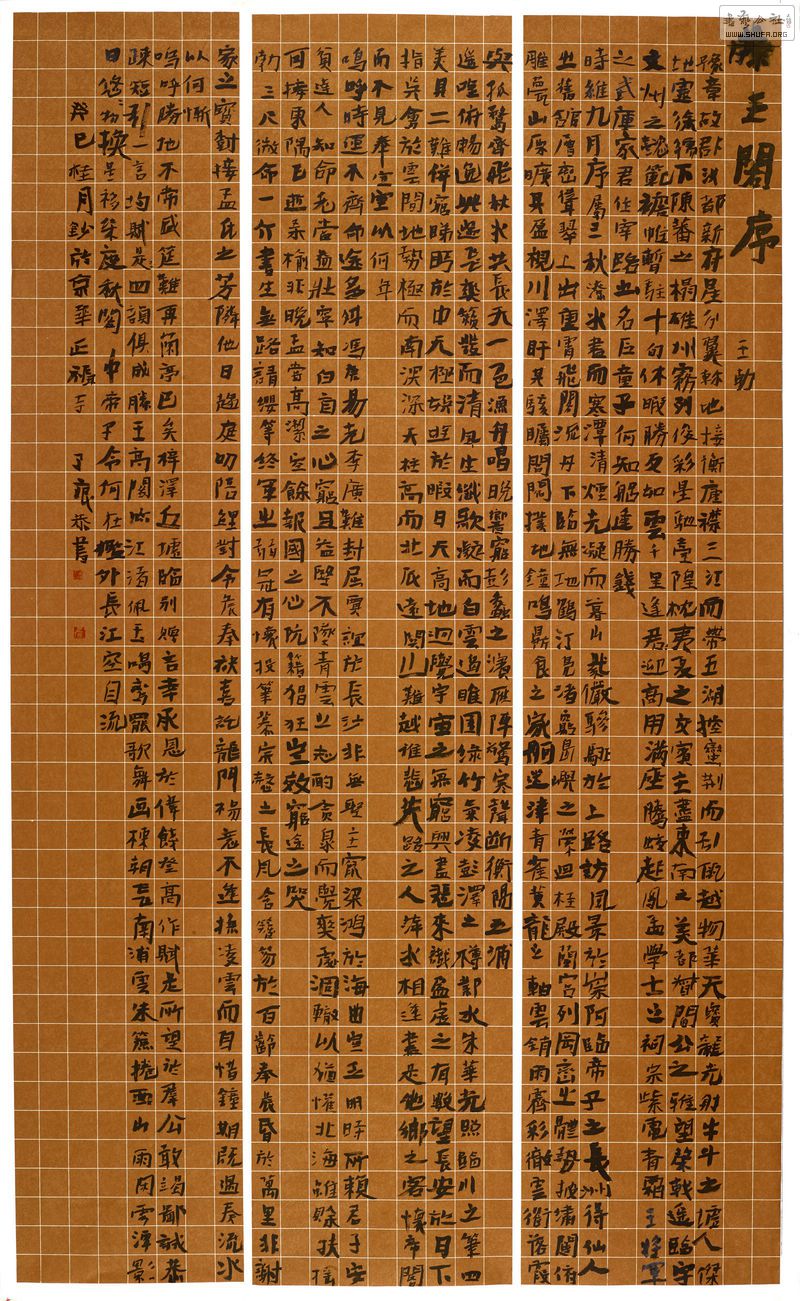 滕王閣序 王勃
豫章故郡洪都新府星分翼軫地接衡廬襟三江而帶五湖控蠻荊而引甌越物華天寶龍光射牛斗之墟人傑
地靈徐孺下陳蕃之榻雄州霧列俊彩星馳臺隍枕夷夏之交賓主盡東南之美都督閻公之雅望棨戟遙臨宇
文州之懿範襜帷暫駐十旬休暇勝友如雲千里逢迎高朋滿座騰蛟起鳳孟學士之詞宗紫電青霜王將軍
之武庫家君作宰路出名區童子何知躬逢勝餞
時維九月序屬三秋潦水盡而寒潭清煙光凝而暮山紫儼驂騑於上路訪風景於崇阿臨帝子之長洲得仙人
之舊館層巒聳翠上出重霄飛閣流丹下臨無地鶴汀鳧渚窮島嶼之縈迴桂殿蘭宮列岡巒之體勢披繡闥俯
雕甍山原曠其盈視川澤盱其駭矚閭閻撲地鐘鳴鼎食之家舸迷津青雀黃龍之軸雲銷雨霽彩徹雲衢落霞
與孤鶩齊飛秋水共長天一色漁舟唱晚響窮彭蠡之濱雁陣驚寒聲斷衡陽之浦
遙吟俯暢逸興遄飛爽籟發而清風生纖歌凝而白雲遏睢園綠竹氣凌彭澤之樽鄴水朱華光照臨川之筆四
美具二難併窮睇眄於中天極娛遊於暇日天高地迥覺宇宙之無窮興盡悲來識盈虛之有數望長安於日下
指吳會於雲間地勢極而南溟深天柱高而北辰遠關山難越誰悲失路之人萍水相逢盡是他鄉之客懷帝閽
而不見奉宣室以何年
嗚呼時運不齊命途多舛馮唐易老李廣難封屈賈誼於長沙非無聖主竄梁鴻於海曲豈乏明時所賴君子安
貧達人知命老當益壯寧知白首之心窮且益堅不墜青雲之志酌貪泉而覺爽處涸轍以猶懽北海雖賒扶搖
可接東隅已逝桑榆非晚孟嘗高潔空餘報國之心阮籍猖狂豈效窮途之哭
勃三尺微命一介書生無路請纓等終軍之弱冠有懷投筆慕宗愨之長風舍簪笏於百齡奉晨昏於萬里非謝
家之寶樹接孟氏之芳隣他日趨庭叨陪鯉對今晨奉袂喜託龍門楊意不逢撫凌雲而自惜鐘期既遇奏流水
以何慚
嗚呼勝地不常盛筵難再蘭亭已矣梓澤丘墟臨別贈言幸承恩於偉餞登高作賦是所望於群公敢竭鄙誠恭
疎短引一言均賦是四韻俱成滕王高閣臨江渚佩玉鳴鸞罷歌舞画棟朝飛南浦雲朱簾捲西山雨閑雲潭影
日悠物換星移幾度秋閣中帝子今何在檻外長江空自流
癸巳桂月鈔於京華
WWW.SHUFA.ORG